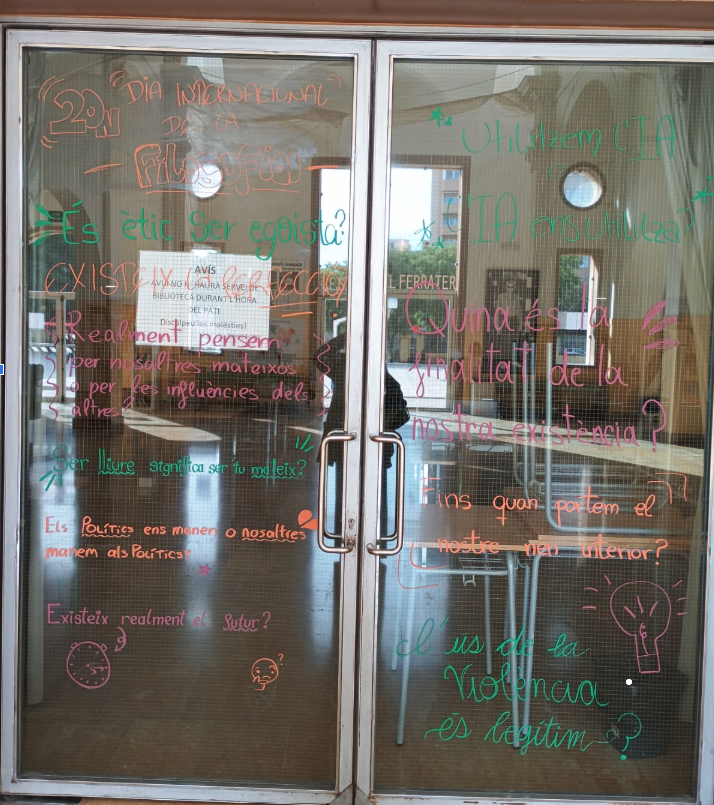 20N
"DIA INTERNACIONAL"
DE LA
FILOSOFIA
És ètic ser egoista?
EXISTEIX LA PERFECCIÓ
AVÍS
BIBLIOTECA DURANT L'HORA
DEL PATI
Disculpeu les molèsties!
Realment pensem
per nosaltres mateixos
o per les influències dels
altres
Ser lliure significa ser tu mateix?
Els Polítics ens manen o nosaltres
manem als Polítics?
Existeix realment el futur?
?
Utilitzem l'IA
o
l'IA ens utilitza?
L FERRATER
Quina és la
finalitat de la
nostra existència?
Fins quan portem el
nostre nen interior?
L'ús de la
Violència
és legítim?